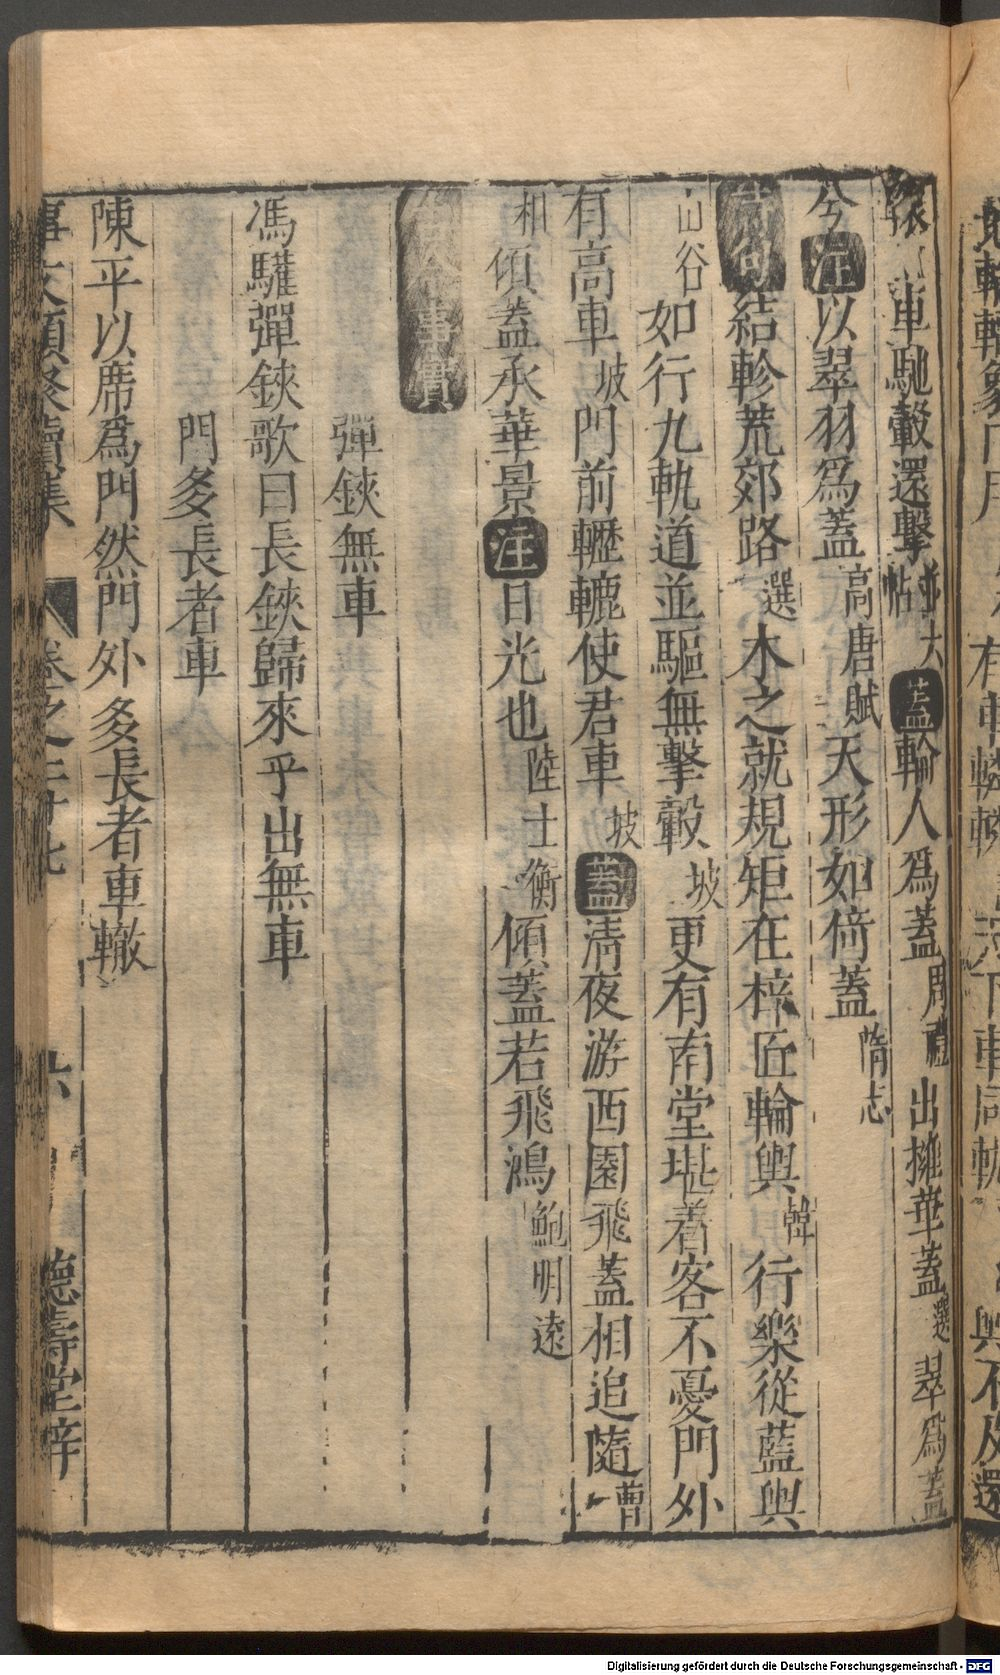 車馳轂還擊並六帖蓋輪人爲蓋周禮出擁華蓋選翠爲蓋
今注以翠羽爲蓋高唐賦天形如倚蓋隋志
詩句結軫荒郊路選木之就規矩在梓匠輪輿韓行樂從藍輿
山谷如行九軌道並驅無擊轂坡更有南堂堪着客不憂門外
有高車坡門前轣轆使君車坡蓋清夜游西園飛蓋相追隨曹
相傾蓋承華景注日光也陸士衡傾蓋若飛鴻鮑明遠
古今事實
彈鋏無車
馮驩彈鋏歌曰長鋏歸來乎出無車
門多長者車
陳平以席爲門然門外多長者車轍
事文類聚續集 卷之二十七 六 德壽堂梓
Digitalisierung gefördert durch die Deutsche Forschungsgemeinschaft - DFG